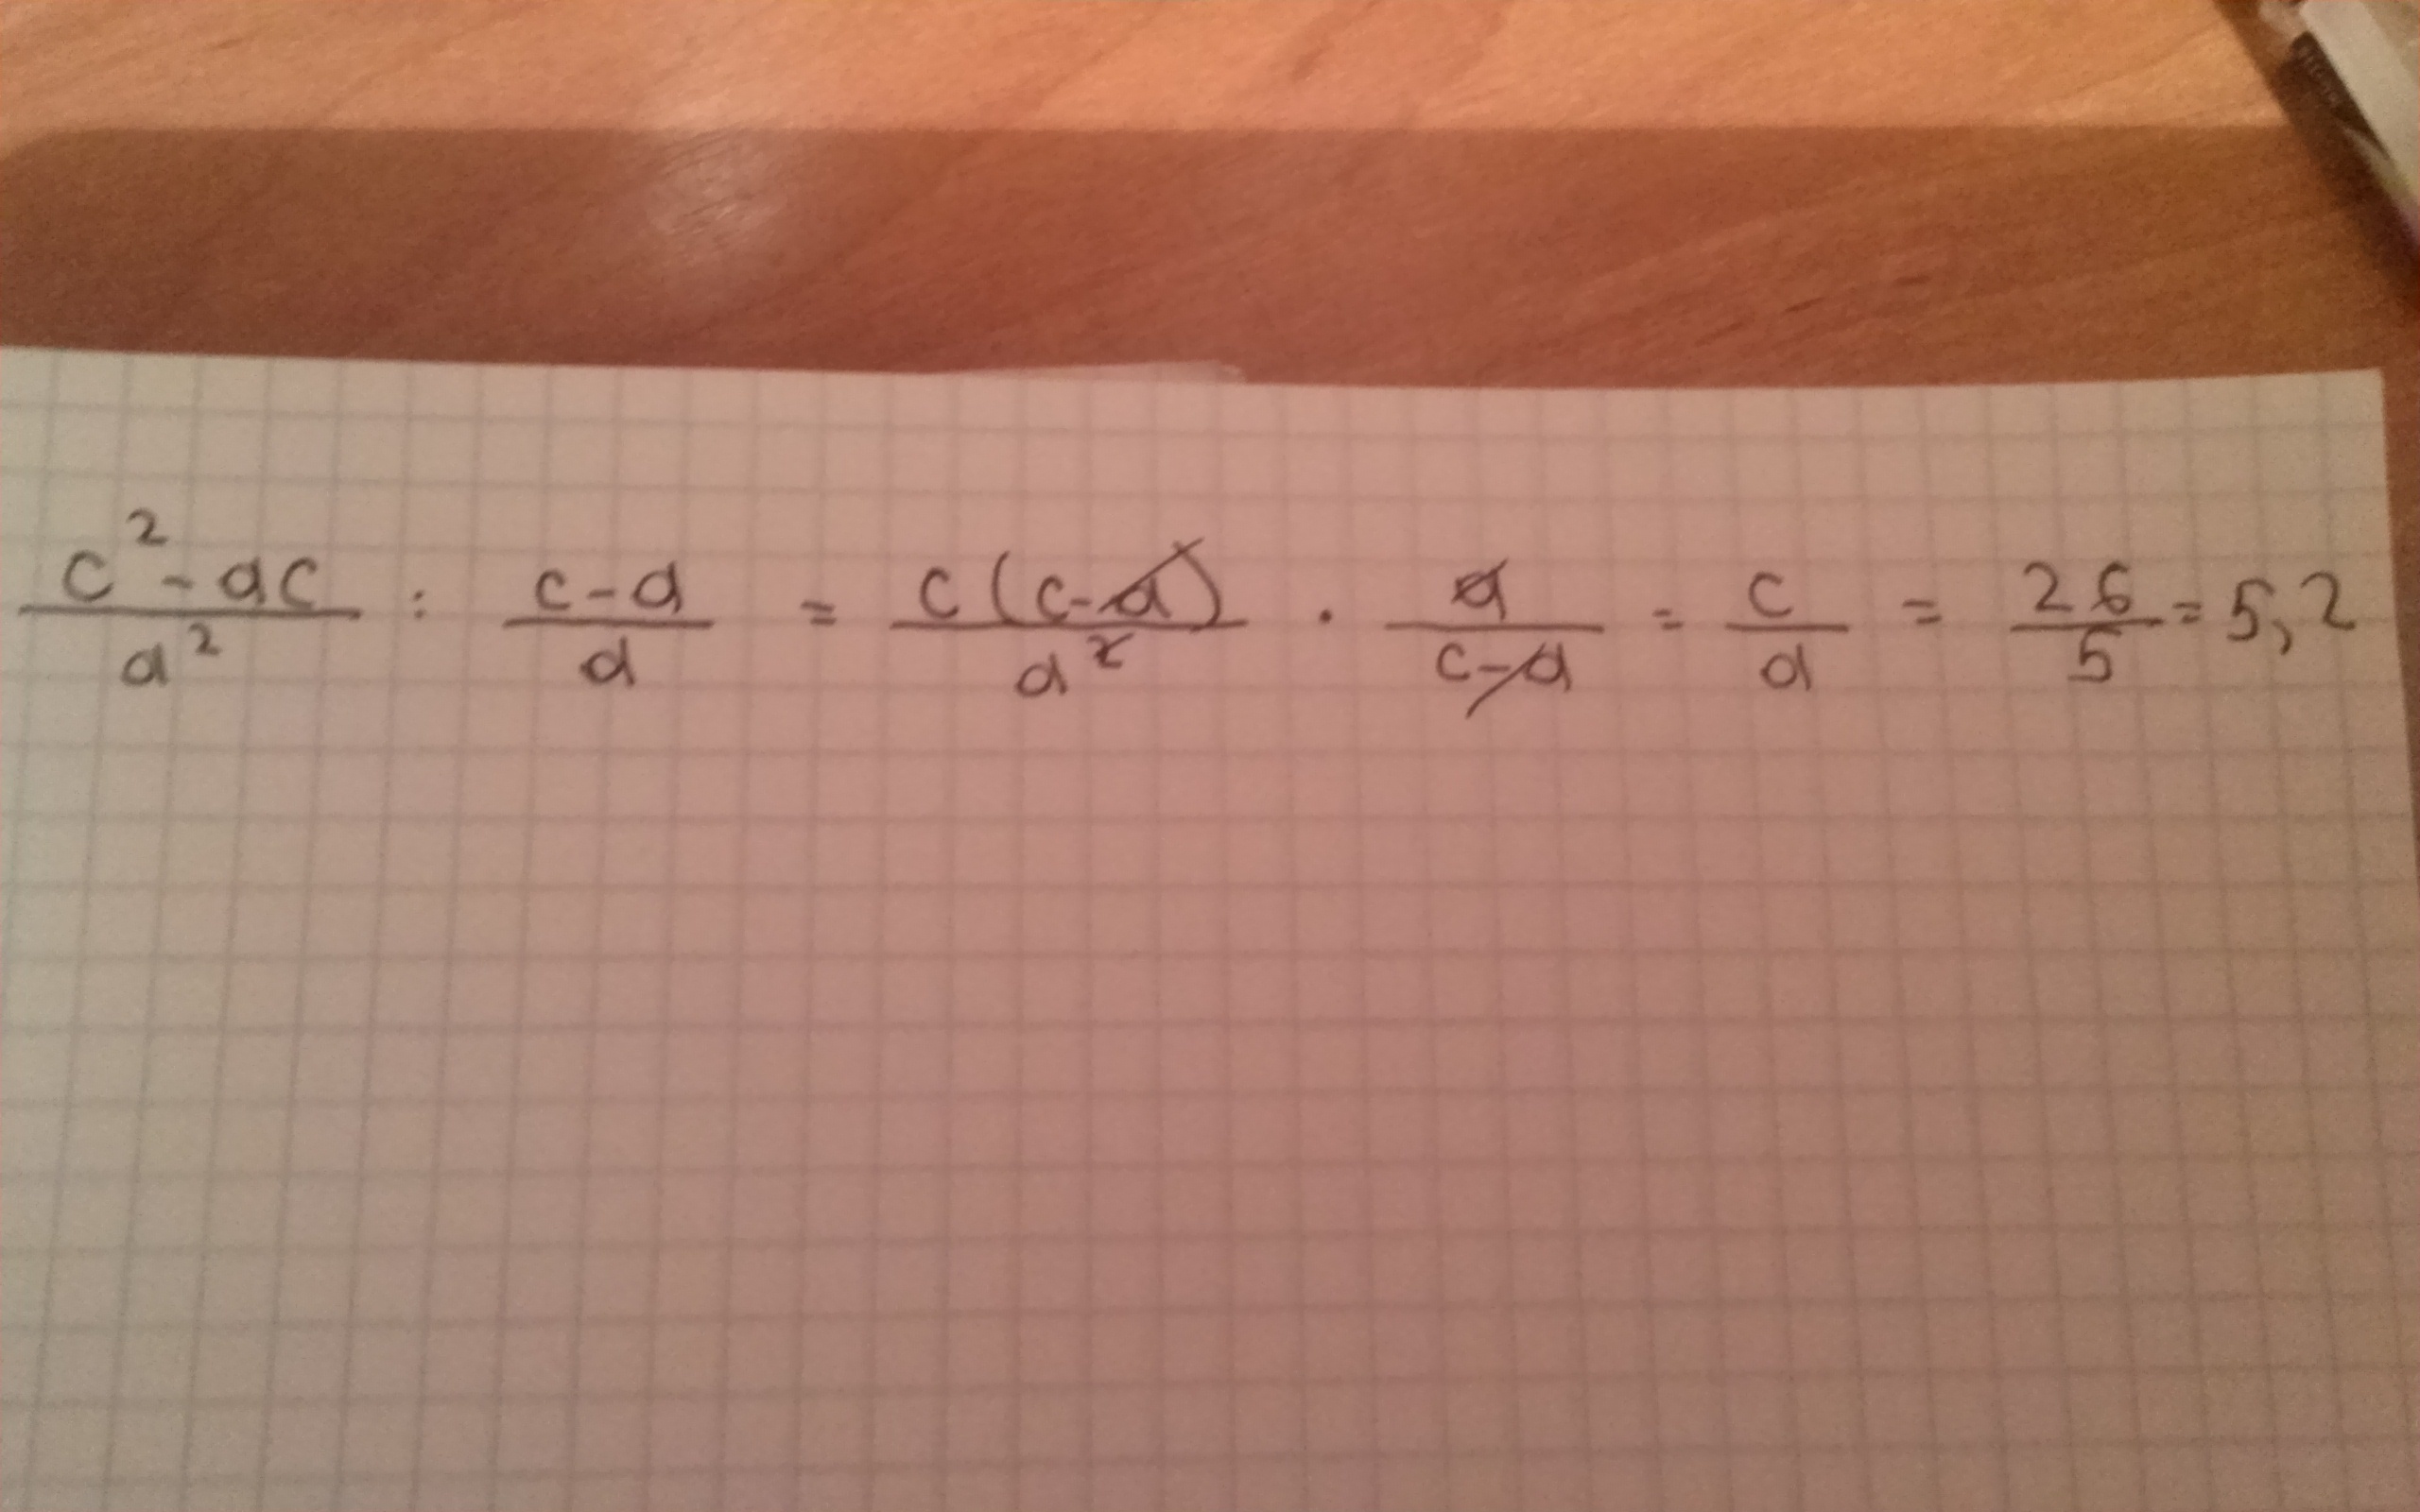 (c² - ac)/a² : (c-a)/a = c(c-a)/a² · a/(c-a) = c/a = 26/5 = 5,2